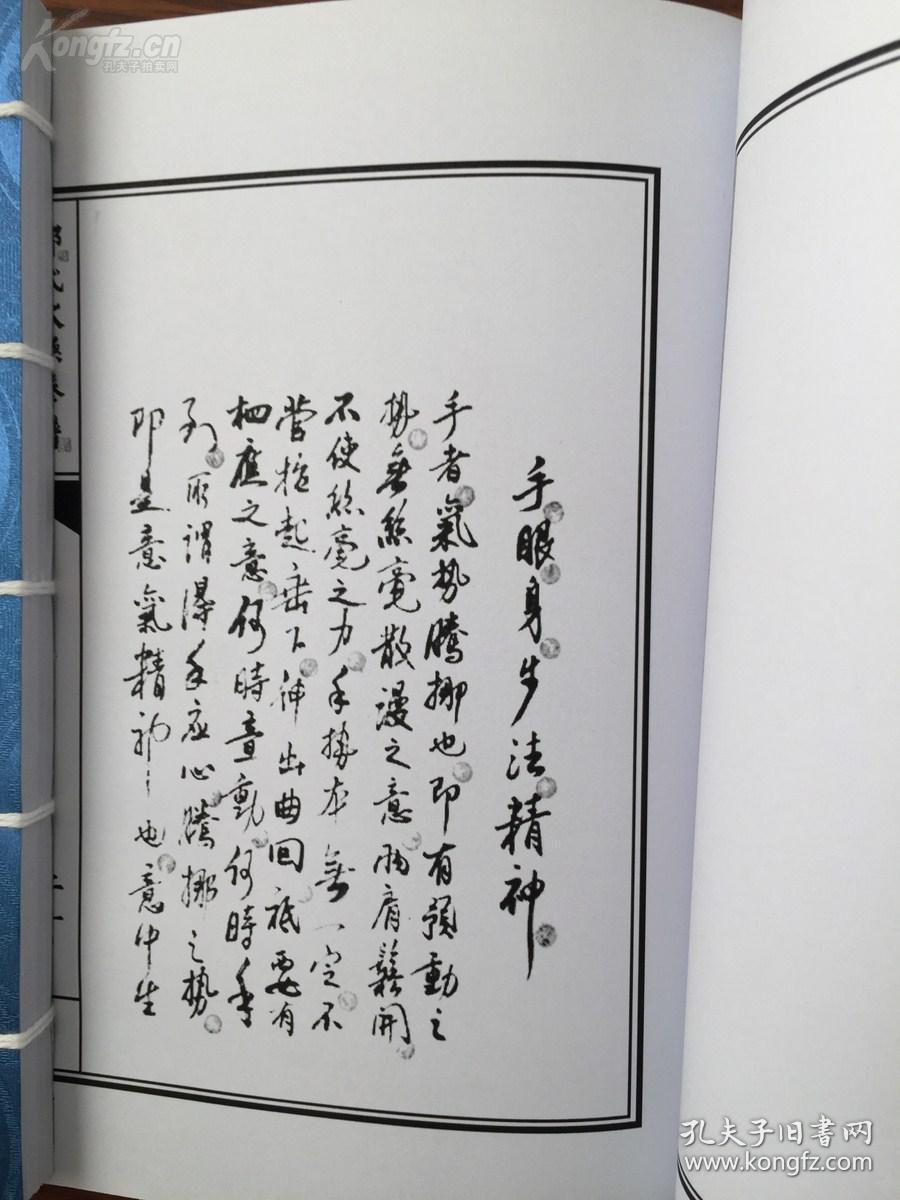 手眼身步法精神
手者氣勢騰挪也即有預動之
勢無絲毫散漫之意兩肩鬆開
不使絲毫之力手勢本無一定不
管抬起垂下伸出曲回祇要有
相應之意何時意動何時手
到所謂得手應心騰挪之勢
即是意氣精神也意中生
Kongfz.cn
孔夫子拍卖网
孔夫子旧书网
www.kongfz.com